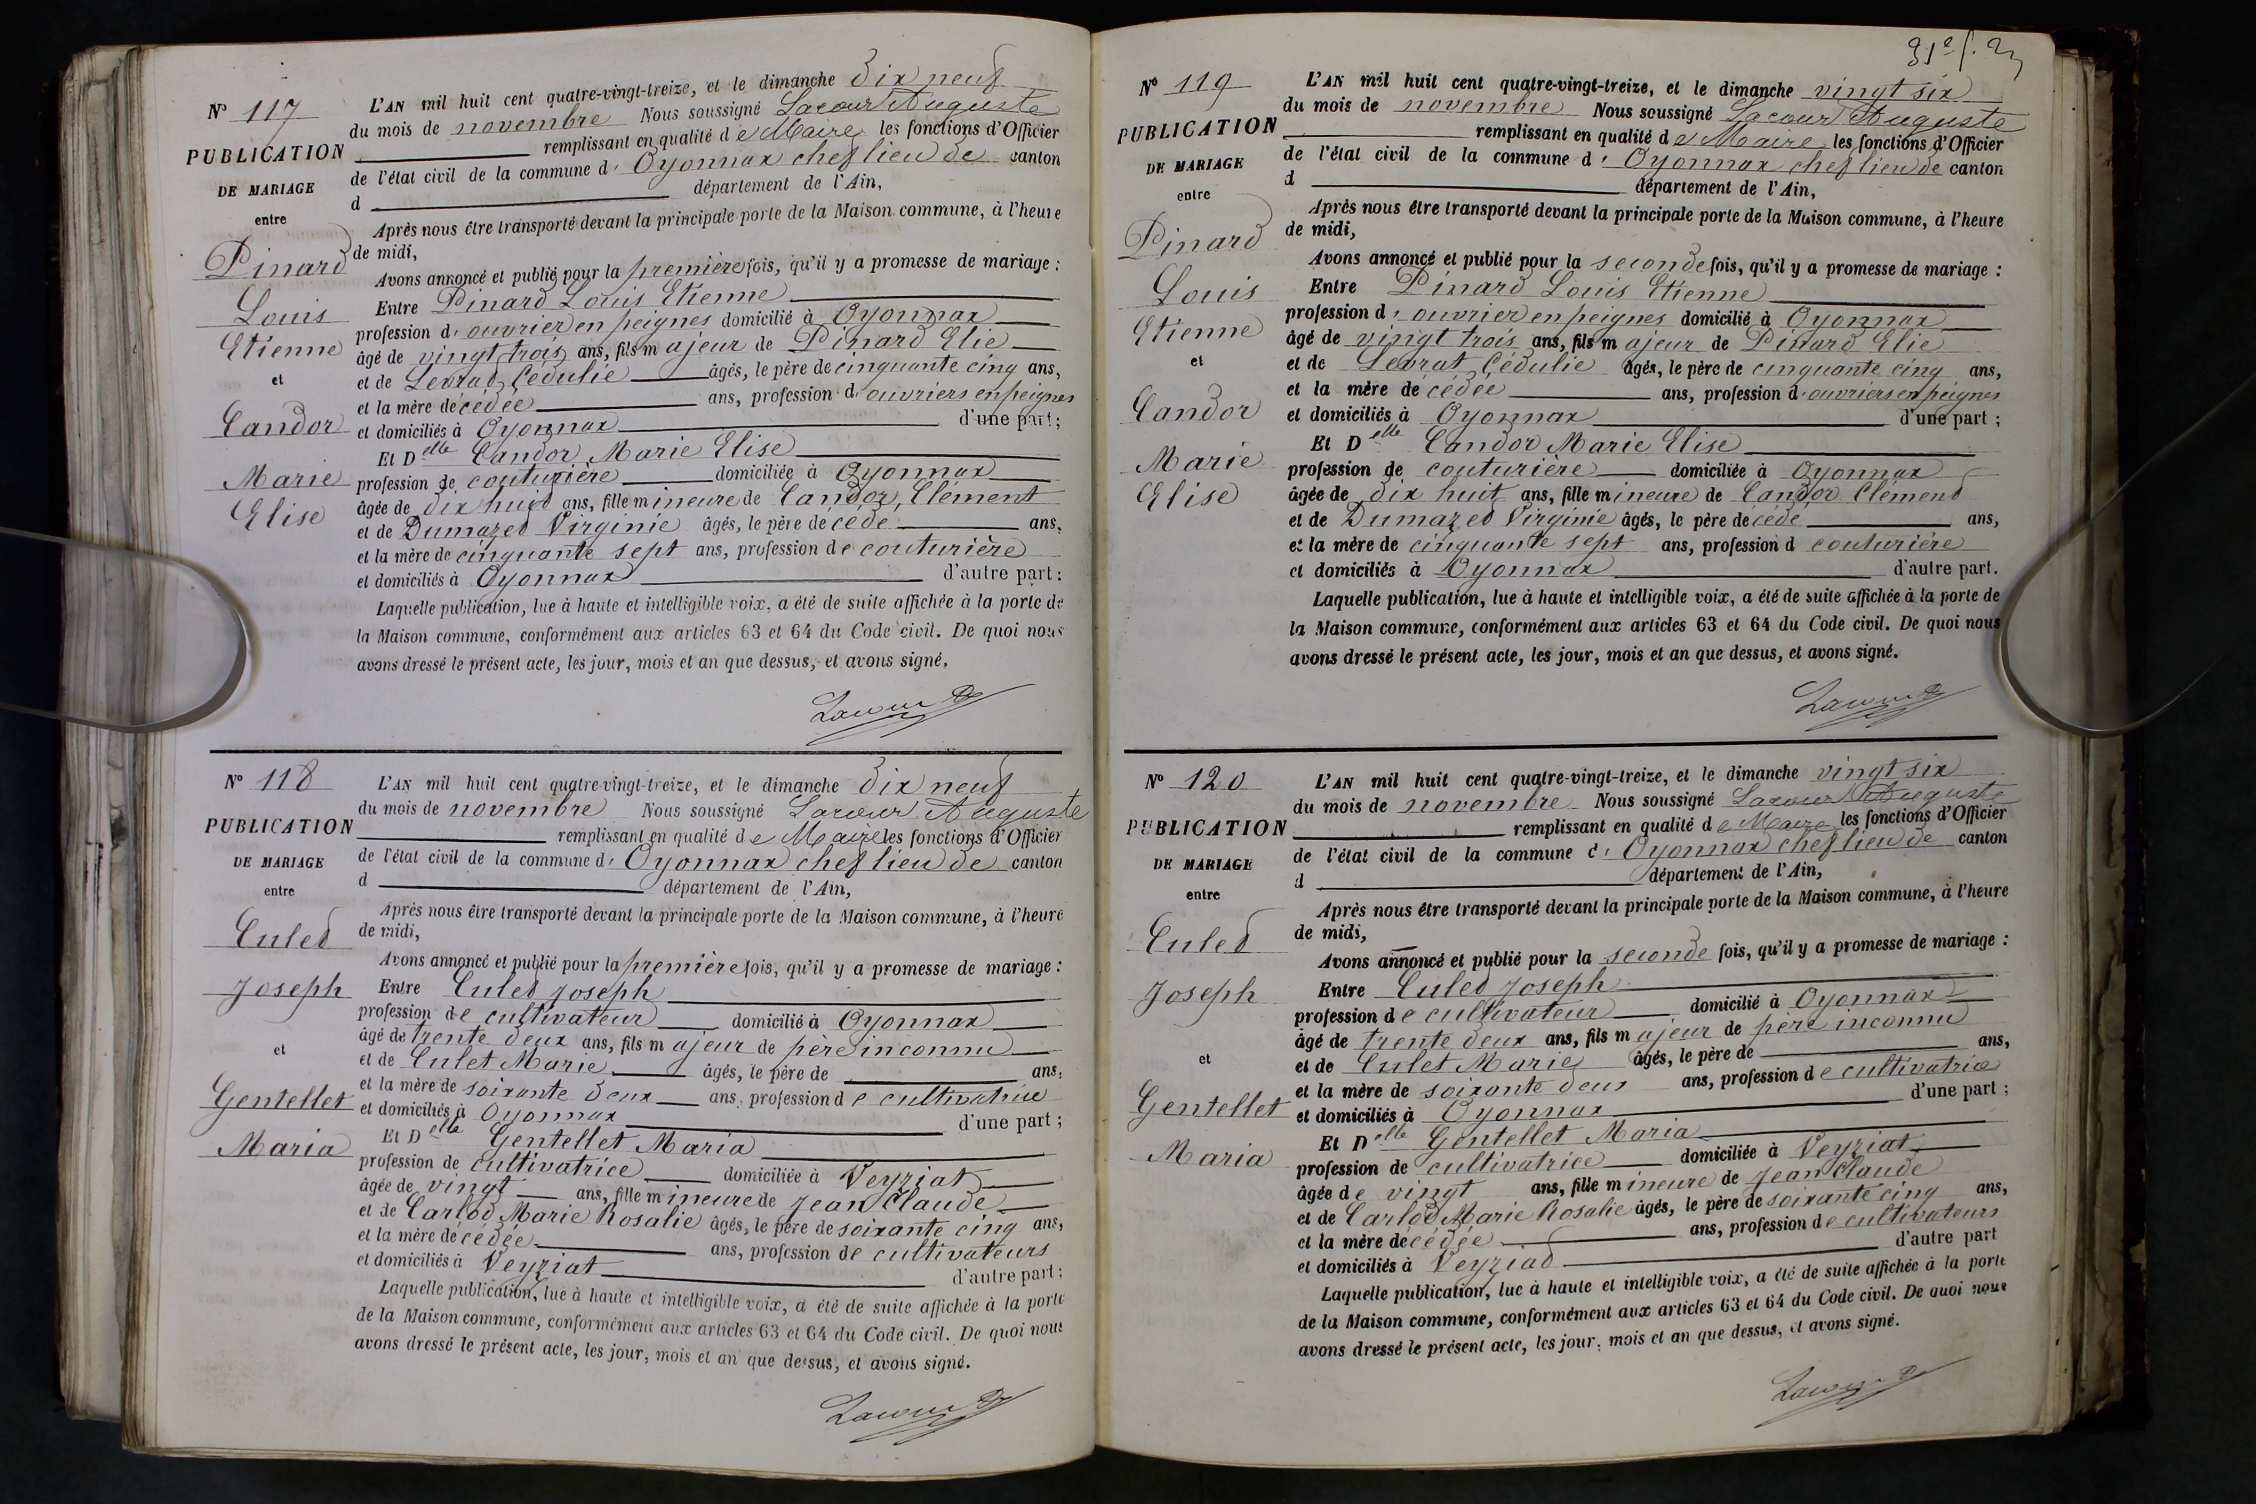 N° 117
PUBLICATION
DE MARIAGE
entre
Pinard
Louis
Etienne
et
Candor
Marie
Elise
L'AN mil huit cent quatre-vingt-treize, et le dimanche dix neuf
du mois de novembre Nous soussigné Lacour Auguste
remplissant en qualité de Maire les fonctions d'Officier
de l'état civil de la commune d' Oyonnax chef lieu de canton
d département de l'Ain,
Après nous être transporté devant la principale porte de la Maison commune, à l'heure
de midi,
Avons annoncé et publié pour la première fois, qu'il y a promesse de mariage :
Entre Pinard Louis Etienne
profession d' ouvrier en peignes domicilié à Oyonnax
âgé de vingt trois ans, fils majeur de Pinard Elie
et de Levrat Cédulie âgés, le père de cinquante cinq ans,
et la mère décédée ans, profession d' ouvriers en peignes
et domiciliés à Oyonnax d'une part ;
Et Delle Candor Marie Elise
profession de couturière domiciliée à Oyonnax
âgée de dix huit ans, fille mineure de Candor Clément
et de Dumazet Virginie âgés, le père décédé ans,
et la mère de cinquante sept ans, profession de couturière
et domiciliés à Oyonnax d'autre part :
Laquelle publication, lue à haute et intelligible voix, a été de suite affichée à la porte de
la Maison commune, conformément aux articles 63 et 64 du Code civil. De quoi nous
avons dressé le présent acte, les jour, mois et an que dessus, et avons signé.
Lacour A
N° 118
PUBLICATION
DE MARIAGE
entre
Culet
Joseph
et
Gentellet
Maria
L'AN mil huit cent quatre-vingt-treize, et le dimanche dix neuf
du mois de novembre Nous soussigné Lacour Auguste
remplissant en qualité de Maire les fonctions d'Officier
de l'état civil de la commune d' Oyonnax chef lieu de canton
d département de l'Ain,
Après nous être transporté devant la principale porte de la Maison commune, à l'heure
de midi,
Avons annoncé et publié pour la première fois, qu'il y a promesse de mariage :
Entre Culet Joseph
profession de cultivateur domicilié à Oyonnax
âgé de trente deux ans, fils majeur de père inconnu
et de Culet Marie âgés, le père de ans,
et la mère de soixante deux ans, profession de cultivatrice
et domiciliés à Oyonnax d'une part ;
Et Delle Gentellet Maria
profession de cultivatrice domiciliée à Veyziat
âgée de vingt ans, fille mineure de Jean Claude
et de Carlod Marie Rosalie âgés, le père de soixante cinq ans,
et la mère décédée ans, profession de cultivateurs
et domiciliés à Veyziat d'autre part ;
Laquelle publication, lue à haute et intelligible voix, a été de suite affichée à la porte
de la Maison commune, conformément aux articles 63 et 64 du Code civil. De quoi nous
avons dressé le présent acte, les jour, mois et an que dessus, et avons signé.
Lacour A
31e f.
N° 119
PUBLICATION
DE MARIAGE
entre
Pinard
Louis
Etienne
et
Candor
Marie
Elise
L'AN mil huit cent quatre-vingt-treize, et le dimanche vingt six
du mois de novembre Nous soussigné Lacour Auguste
remplissant en qualité de Maire les fonctions d'Officier
de l'état civil de la commune d' Oyonnax chef lieu de canton
d département de l'Ain,
Après nous être transporté devant la principale porte de la Maison commune, à l'heure
de midi,
Avons annoncé et publié pour la seconde fois, qu'il y a promesse de mariage :
Entre Pinard Louis Etienne
profession d' ouvrier en peignes domicilié à Oyonnax
âgé de vingt trois ans, fils majeur de Pinard Elie
et de Levrat Cédulie âgés, le père de cinquante cinq ans,
et la mère décédée ans, profession d' ouvriers en peignes
et domiciliés à Oyonnax d'une part ;
Et Delle Candor Marie Elise
profession de couturière domiciliée à Oyonnax
âgée de dix huit ans, fille mineure de Candor Clément
et de Dumazet Virginie âgés, le père décédé ans,
et la mère de cinquante sept ans, profession d couturière
et domiciliés à Oyonnax d'autre part.
Laquelle publication, lue à haute et intelligible voix, a été de suite affichée à la porte de
la Maison commune, conformément aux articles 63 et 64 du Code civil. De quoi nous
avons dressé le présent acte, les jour, mois et an que dessus, et avons signé.
Lacour A
N° 120
PUBLICATION
DE MARIAGE
entre
Culet
Joseph
et
Gentellet
Maria
L'AN mil huit cent quatre-vingt-treize, et le dimanche vingt six
du mois de novembre Nous soussigné Lacour Auguste
remplissant en qualité de Maire les fonctions d'Officier
de l'état civil de la commune d' Oyonnax chef lieu de canton
d département de l'Ain,
Après nous être transporté devant la principale porte de la Maison commune, à l'heure
de midi,
Avons annoncé et publié pour la seconde fois, qu'il y a promesse de mariage :
Entre Culet Joseph
profession de cultivateur domicilié à Oyonnax
âgé de trente deux ans, fils majeur de père inconnu
et de Culet Marie âgés, le père de ans,
et la mère de soixante deux ans, profession de cultivatrice
et domiciliés à Oyonnax d'une part ;
Et Delle Gentellet Maria
profession de cultivatrice domiciliée à Veyziat
âgée de vingt ans, fille mineure de Jean Claude
et de Carlod Marie Rosalie âgés, le père de soixante cinq ans,
et la mère décédée ans, profession de cultivateurs
et domiciliés à Veyziat d'autre part
Laquelle publication, lue à haute et intelligible voix, a été de suite affichée à la porte
de la Maison commune, conformément aux articles 63 et 64 du Code civil. De quoi nous
avons dressé le présent acte, les jour, mois et an que dessus, et avons signé.
Lacour A